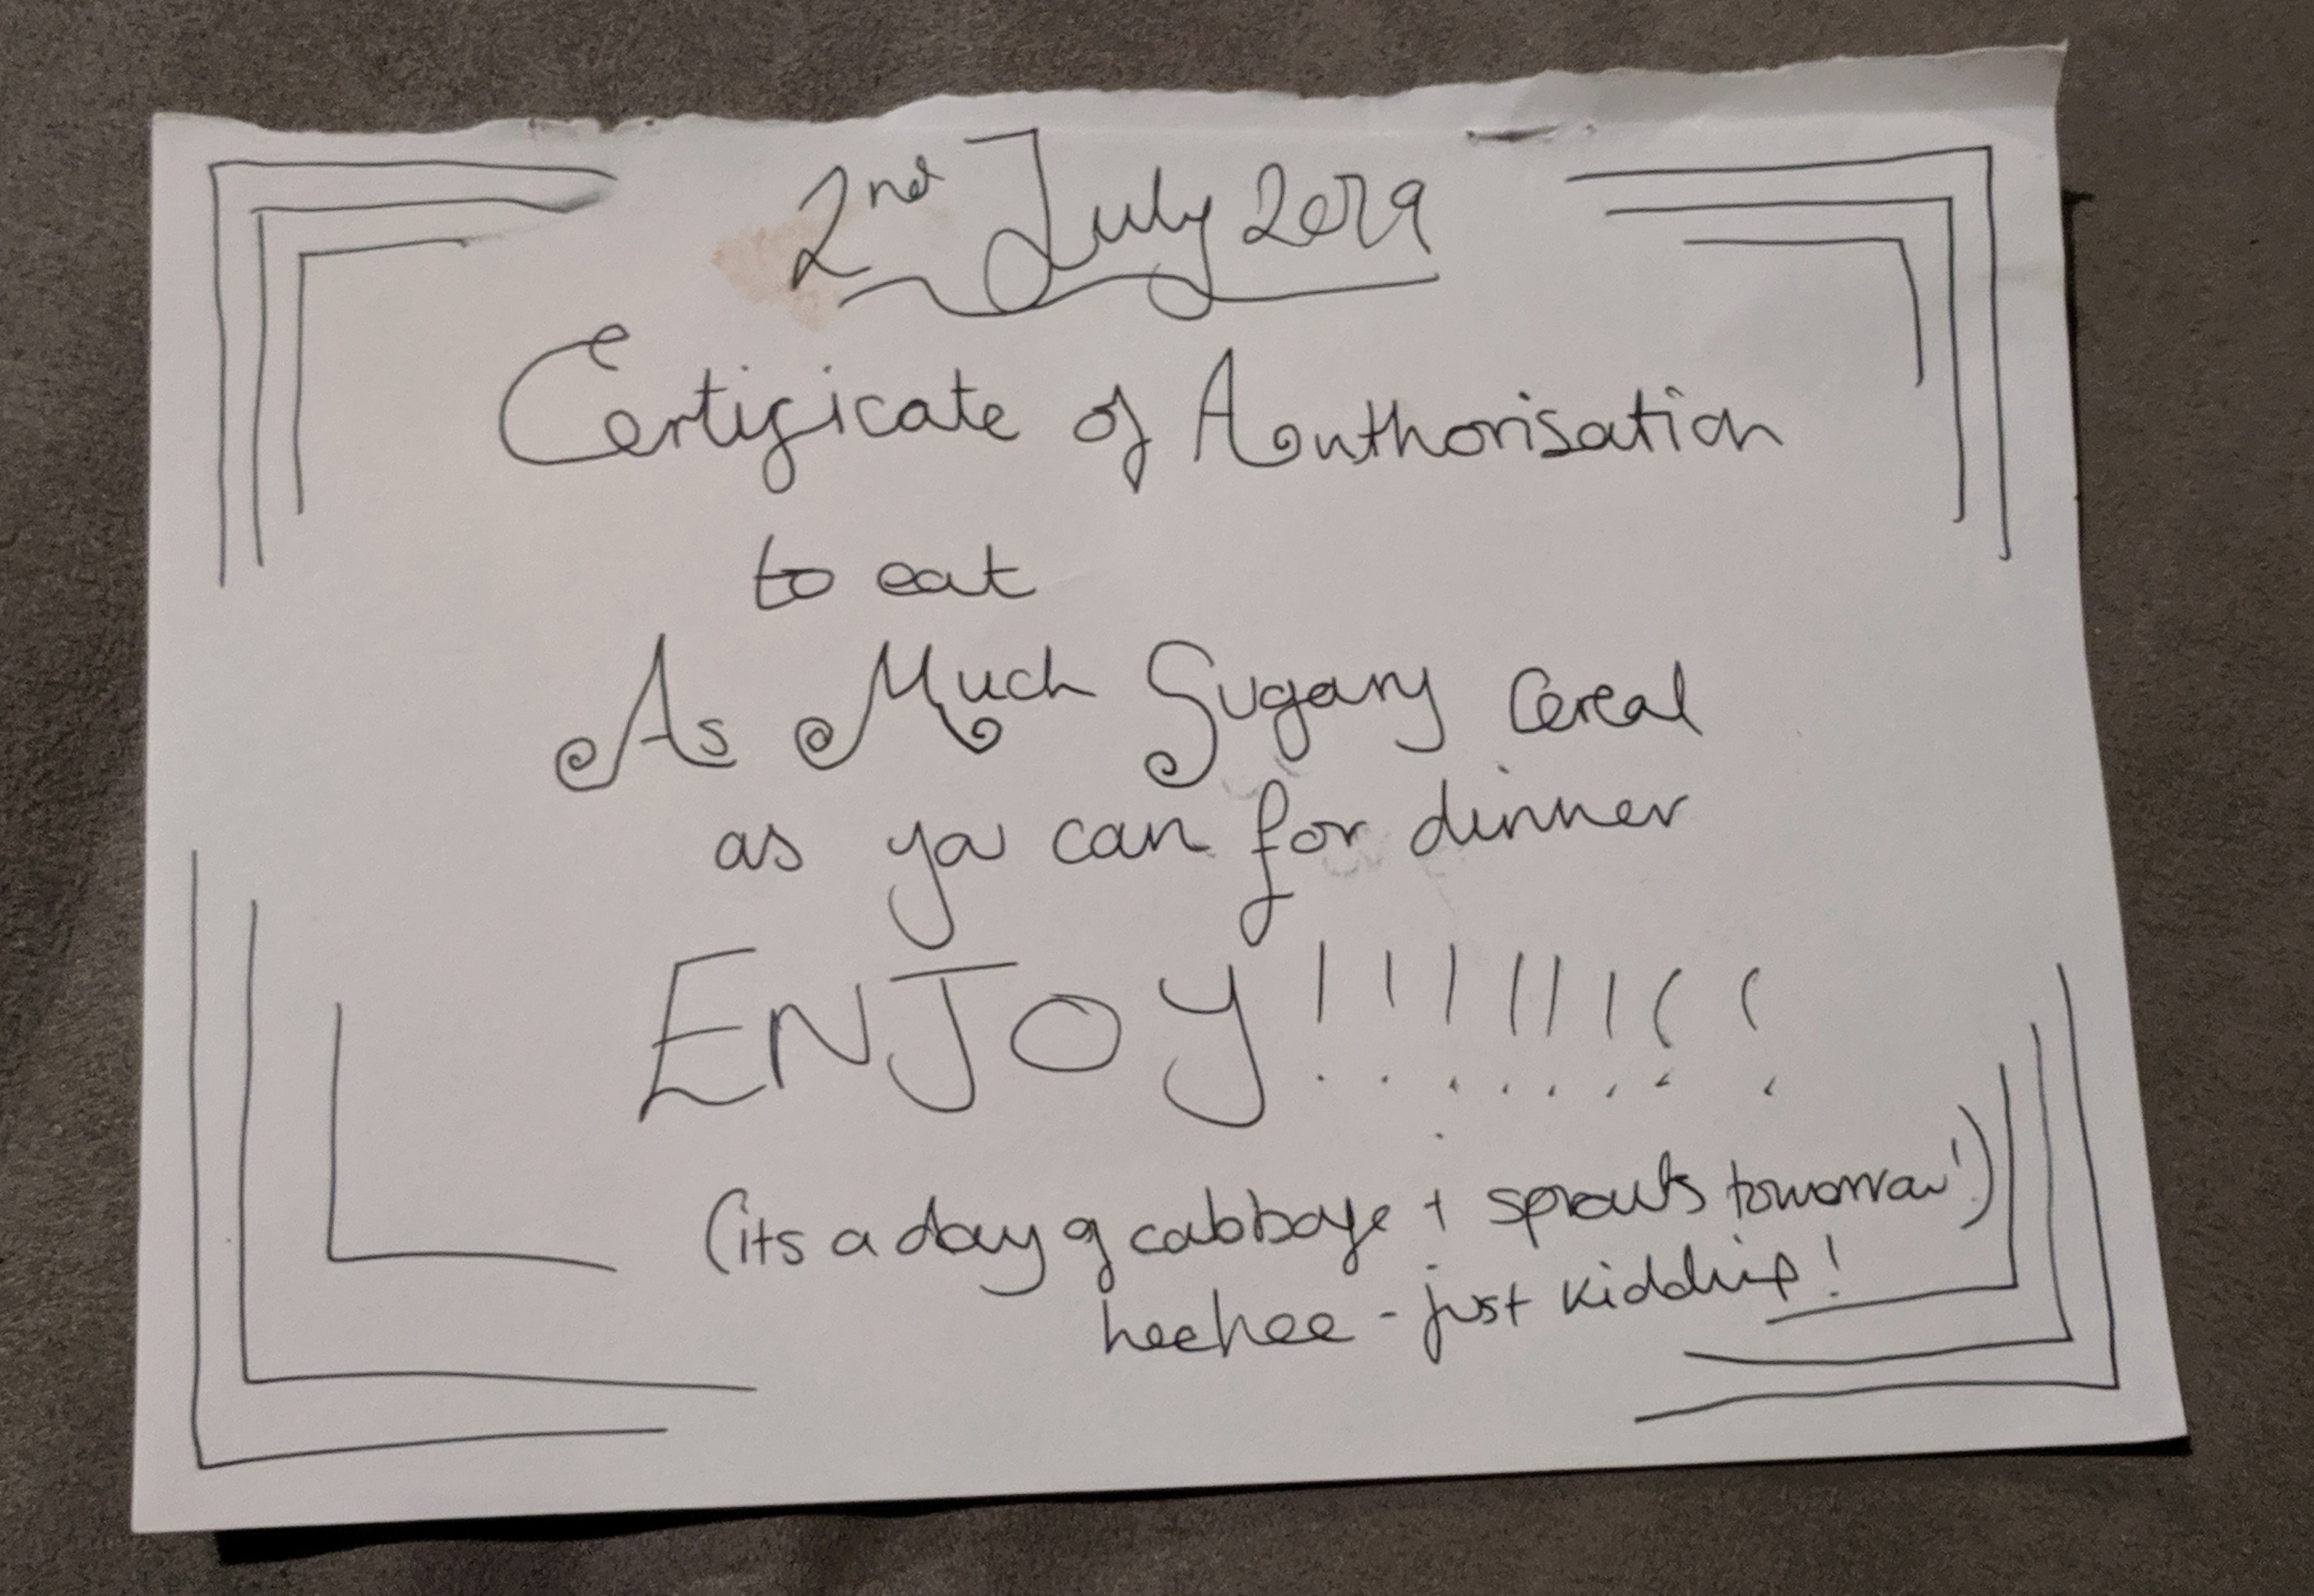 2nd July 2019
Certificate of Authorisation
to eat
As Much Sugary Cereal
as ya can for dinner
ENJOY!!!!!!!!
(its a day of cabbage + sprouts tomorrow!)
heehee - just kidding!